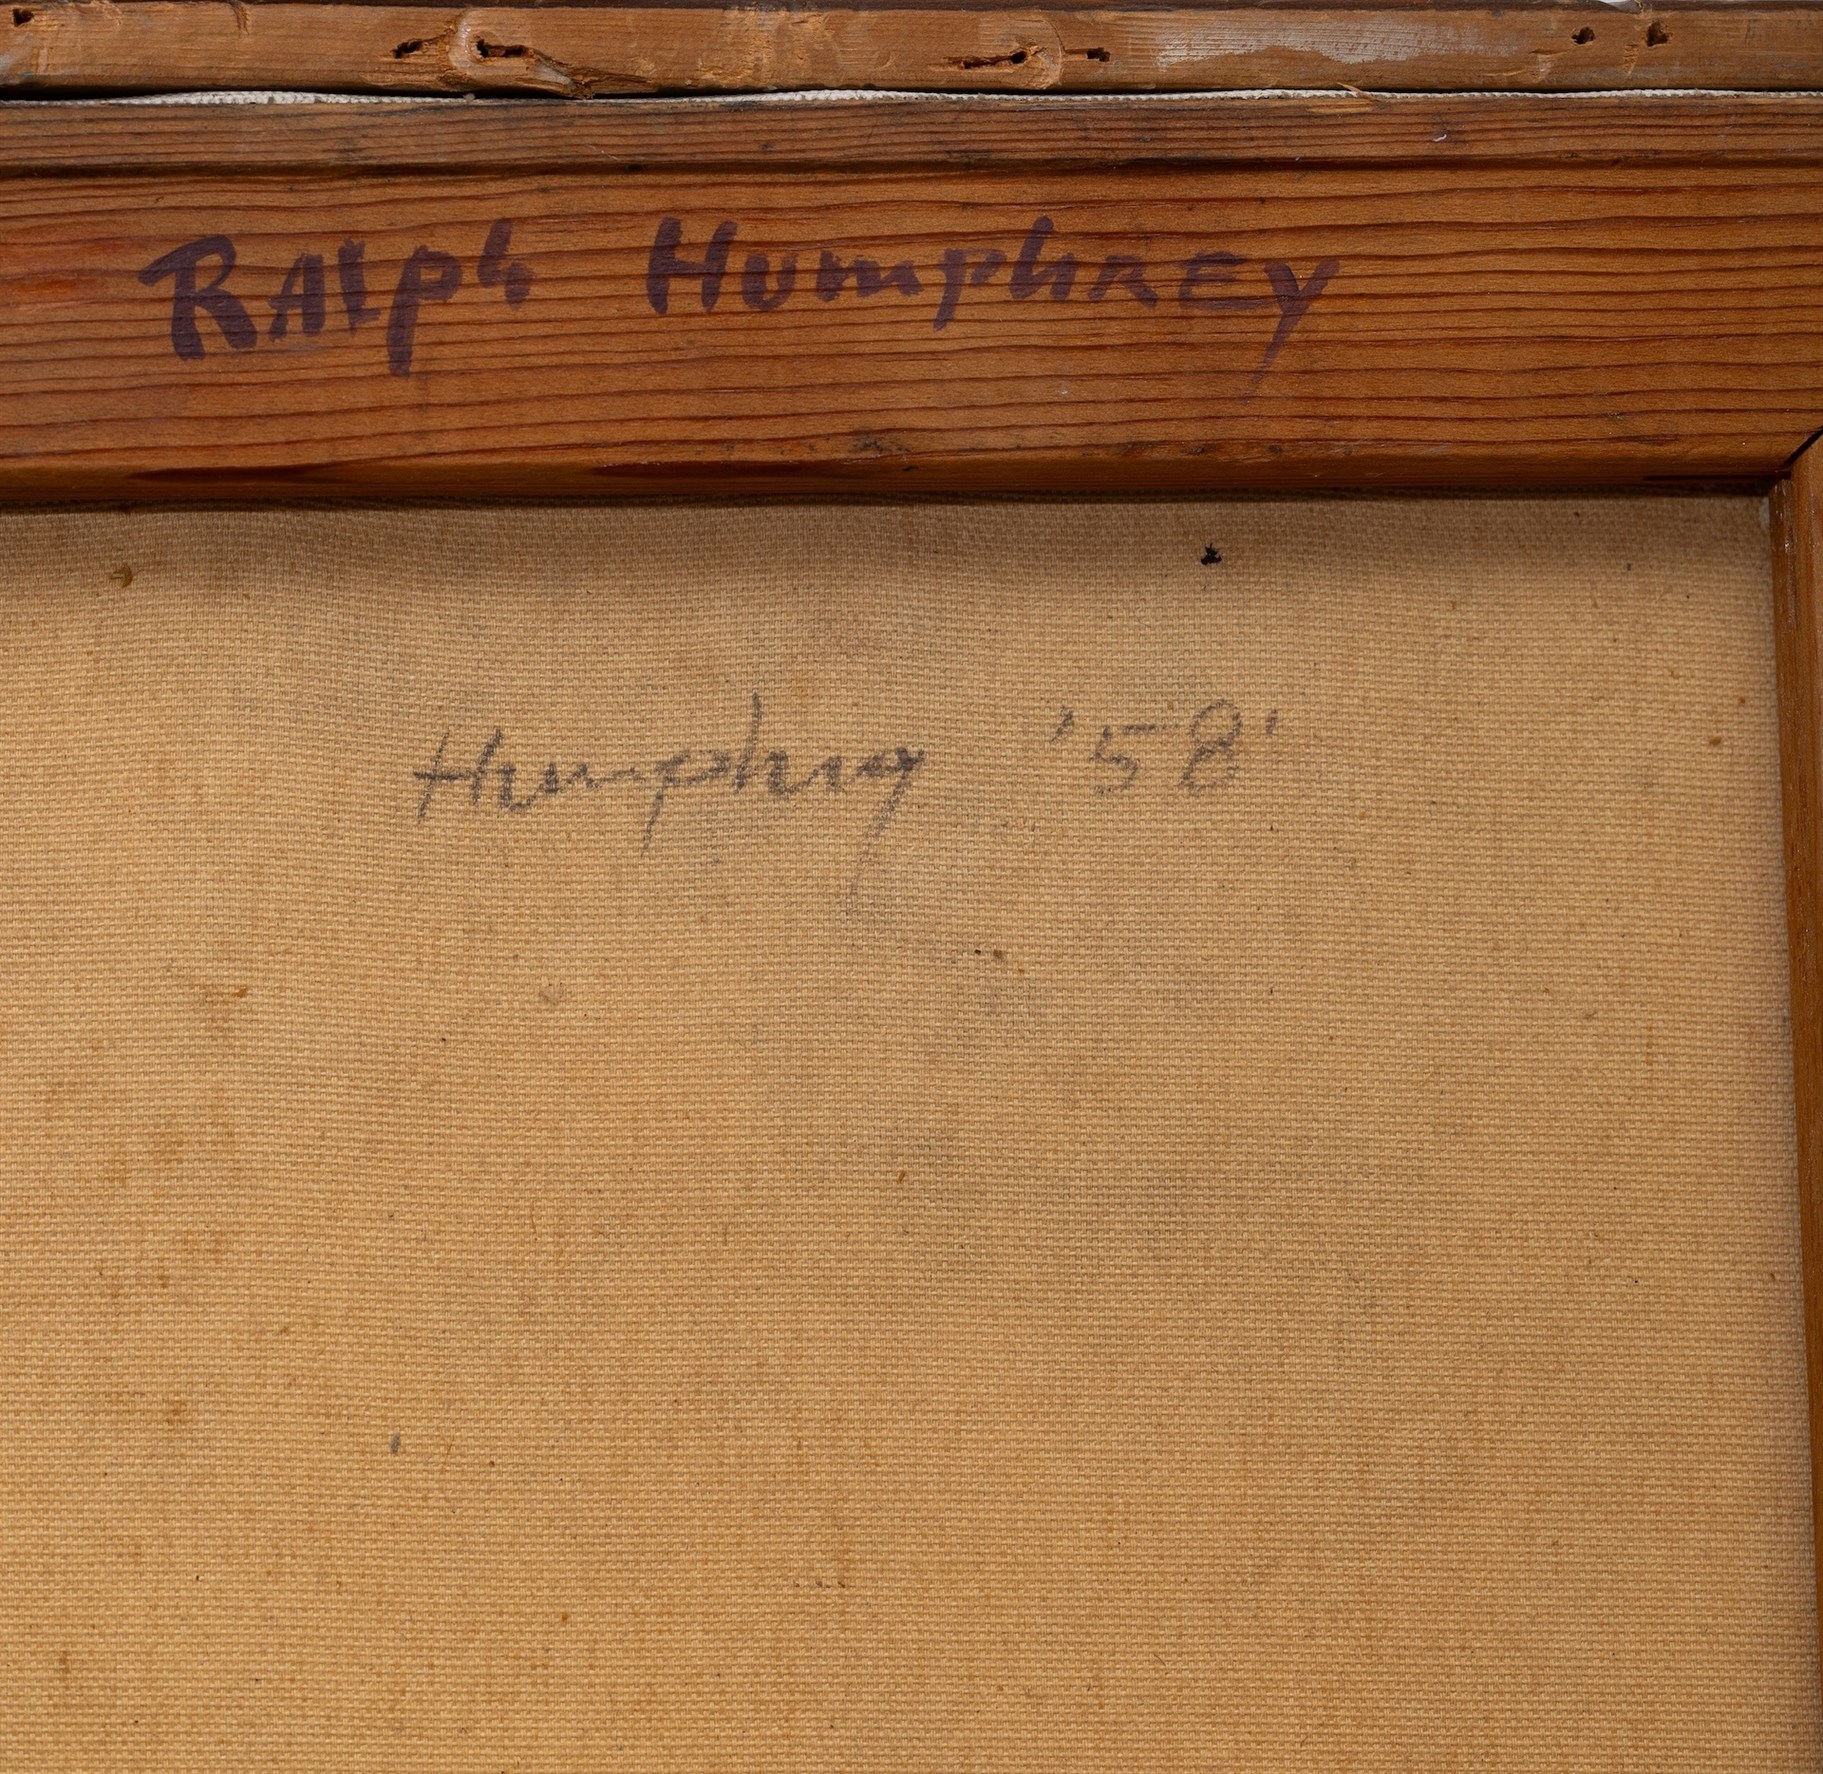 RALPh HumphREy
Humphrey '58'